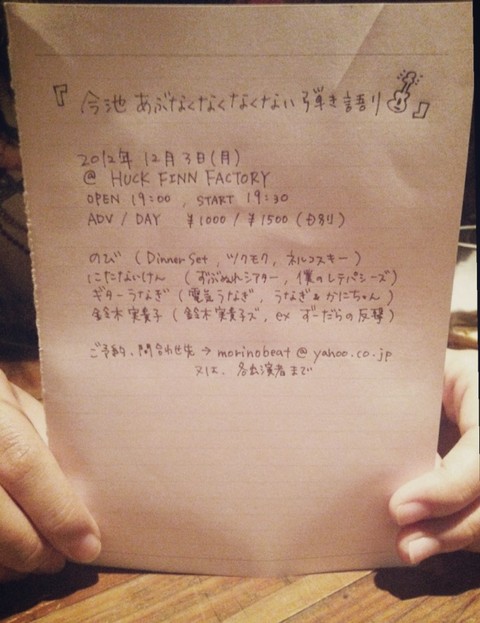 『今池 あぶなくなくなくなくない 弾き語り』
2012年 12月 3日(月)
@ HUCK FINN FACTORY
OPEN 19:00 , START 19:30
ADV / DAY ¥1000 / ¥1500 (D別)
のび ( Dinner Set , ツクモク , ネルコスキー )
にたないけん ( ずぶぬれシアター , 僕のレテパシーズ)
ギターうなぎ ( 電気うなぎ , うなぎ&かにちゃん )
鈴木実貴子 ( 鈴木実貴子ズ , ex ずーだらの反撃 )
ご予約、問合わせ先 → morinobeat @ yahoo.co.jp
又は、各出演者まで